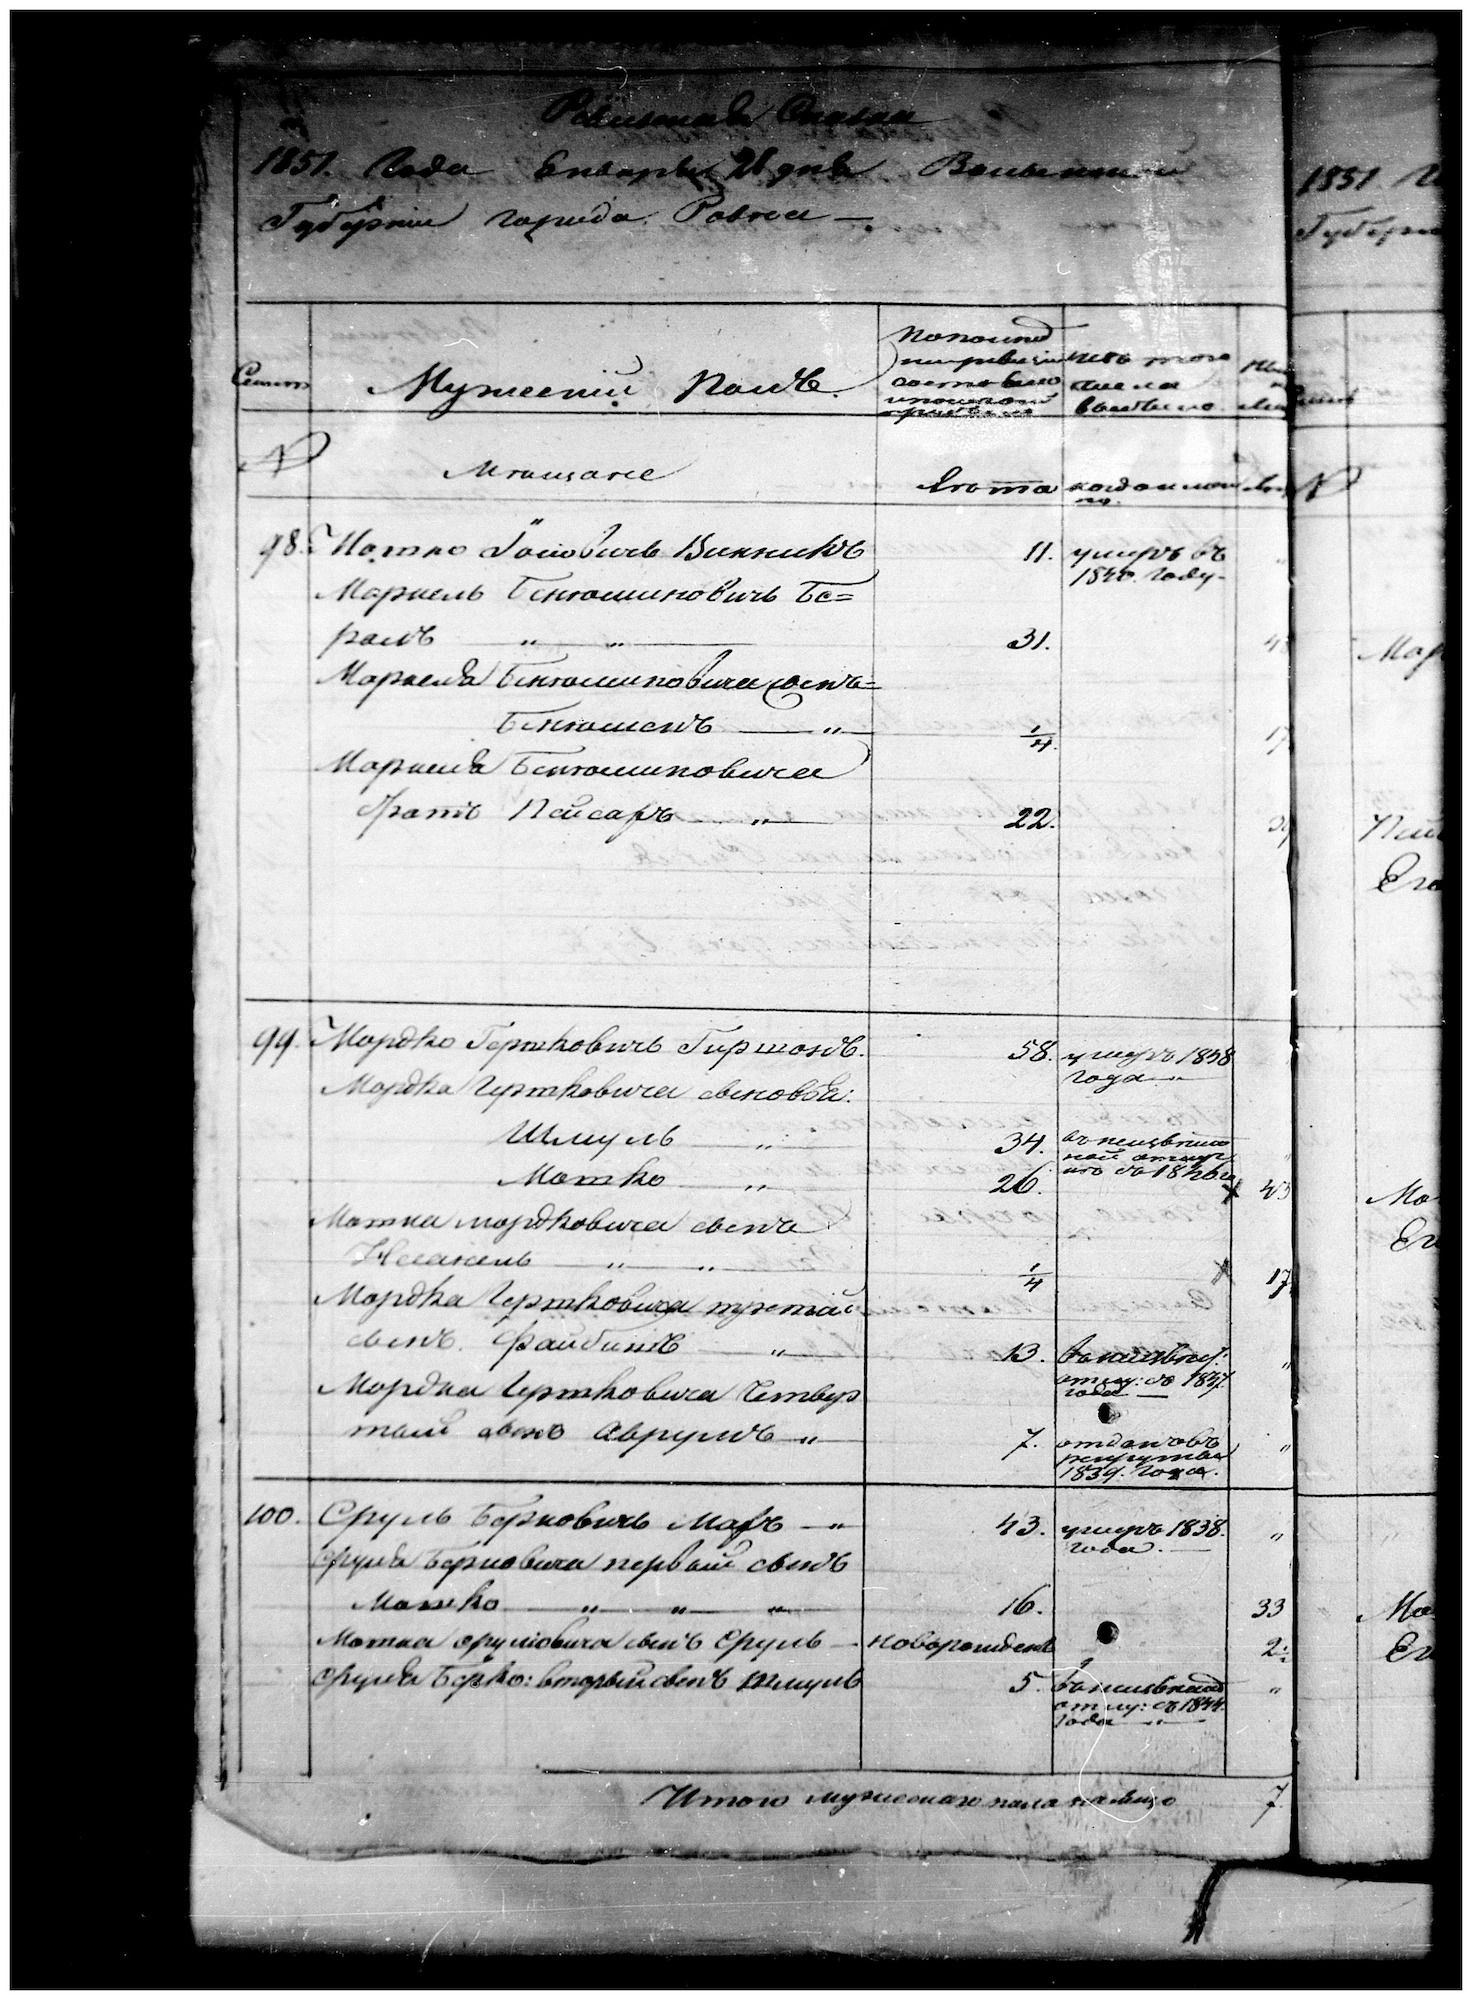 Ревизская Сказка
1851. Года Генваря 26 дня Волынской
Губернии города Ровна —
Семьи
Мужескій Полъ.
По последней ревизіи состояло и после оной прибыло
Изъ того числа выбыло
№
Мещане
Лета
когда именно
98. Мотко Іосиовичъ Винникъ 11. умеръ въ
1840. году.
Маркель Бенюминовичъ Бе=
ралъ " " 31.
Маркеля Бенюминовича сынъ=
Бенюменъ — " 1/4.
Маркеля Бенюминовича
братъ Пейсахъ " 22.
99. Мордко Гершковичъ Гиршонъ. 58. умеръ 1838
года "
Мордка Гершковича сыновья:
Шмуль " 34. въ неизвестной отлуч. съ 1840 го
Мотко " 26. 43
Мотка Мордковича сынъ
" " 1/4 17
Мордка Гершковича третій
сынъ Файбишъ — " 13. въ неизвест:
отлу: съ 1837.
года — "
Мордка Гершковича Четвер
тый сынъ Аврумъ — " 7. отданъ въ
рекруты
1839. года. "
100. Сруль Берковичъ — " 43. умеръ 1838.
года. — "
Сруля Берковича первый сынъ
Мошко — " — " — " 16. 33
Мошка Срулиовича сынъ Сруль — новорожденъ 2
Сруля Берко: вторый сынъ Шмуль 5. въ неизвестной
отлу: съ 1844.
года — " — "
Итого мужескаго пола налицо 7.
1851 Го
Губерн
Семьи
№
Мар
Пей
Его
Мо
Ег
Мо
Ег